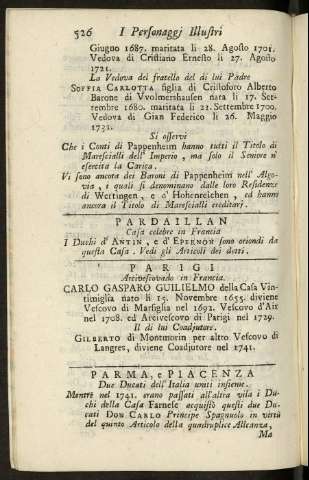 526 I Personaggj Illustri
Giugno 1687. maritata li 28. Agosto 1701.
Vedova di Cristiano Ernesto li 27. Agosto
1721.
La Vedova del fratello del di lui Padre
SOFFIA CARLOTTA figlia di Cristoforo Alberto
Barone di Vvolmershausen nata li 17. Set-
tembre 1680. maritata li 22. Settembre 1700.
Vedova di Gian Federico li 26. Maggio
1731.
Si osservi
Che i Conti di Pappenheim hanno tutti il Titolo di
Marescialli dell'Imperio, ma solo il Seniore n'
esercita la Carica.
Vi sono ancora dei Baroni di Pappenheim nell' Algo-
via, i quali si denominano dalle loro Residenze
di Wertingen, e d'Hohenreichen, ed hanno
ancora il Titolo di Marescialli ereditarj.
PARDAILLAN
Casa celebre in Francia
I Duchi d'ANTIN, e d'EPERNON sono oriondi da
questa Casa. Vedi gli Articoli dei duti.
PARIGI
Arcivescovado in Francia.
CARLO GASPARO GUILIELMO della Casa Vin-
timiglia nato li 15. Novembre 1655. diviene
Vescovo di Marsiglia nel 1692. Vescovo d'Aix
nel 1708. ed Arcivescovo di Parigi nel 1729.
Il di lui Coadjutore.
GILBERTO di Montmorin per altro Vescovo di
Langres, diviene Coadjutore nel 1741.
PARMA, e PIACENZA
Due Ducati dell'Italia uniti insieme.
Mentrè nel 1741. erano passati all'altra vita i Du-
chi della Casa Farnese acquistò questi due Du-
cati DON CARLO Principe Spagnuolo in virtù
del quinto Articolo della quadruplice Alleanza,
Ma